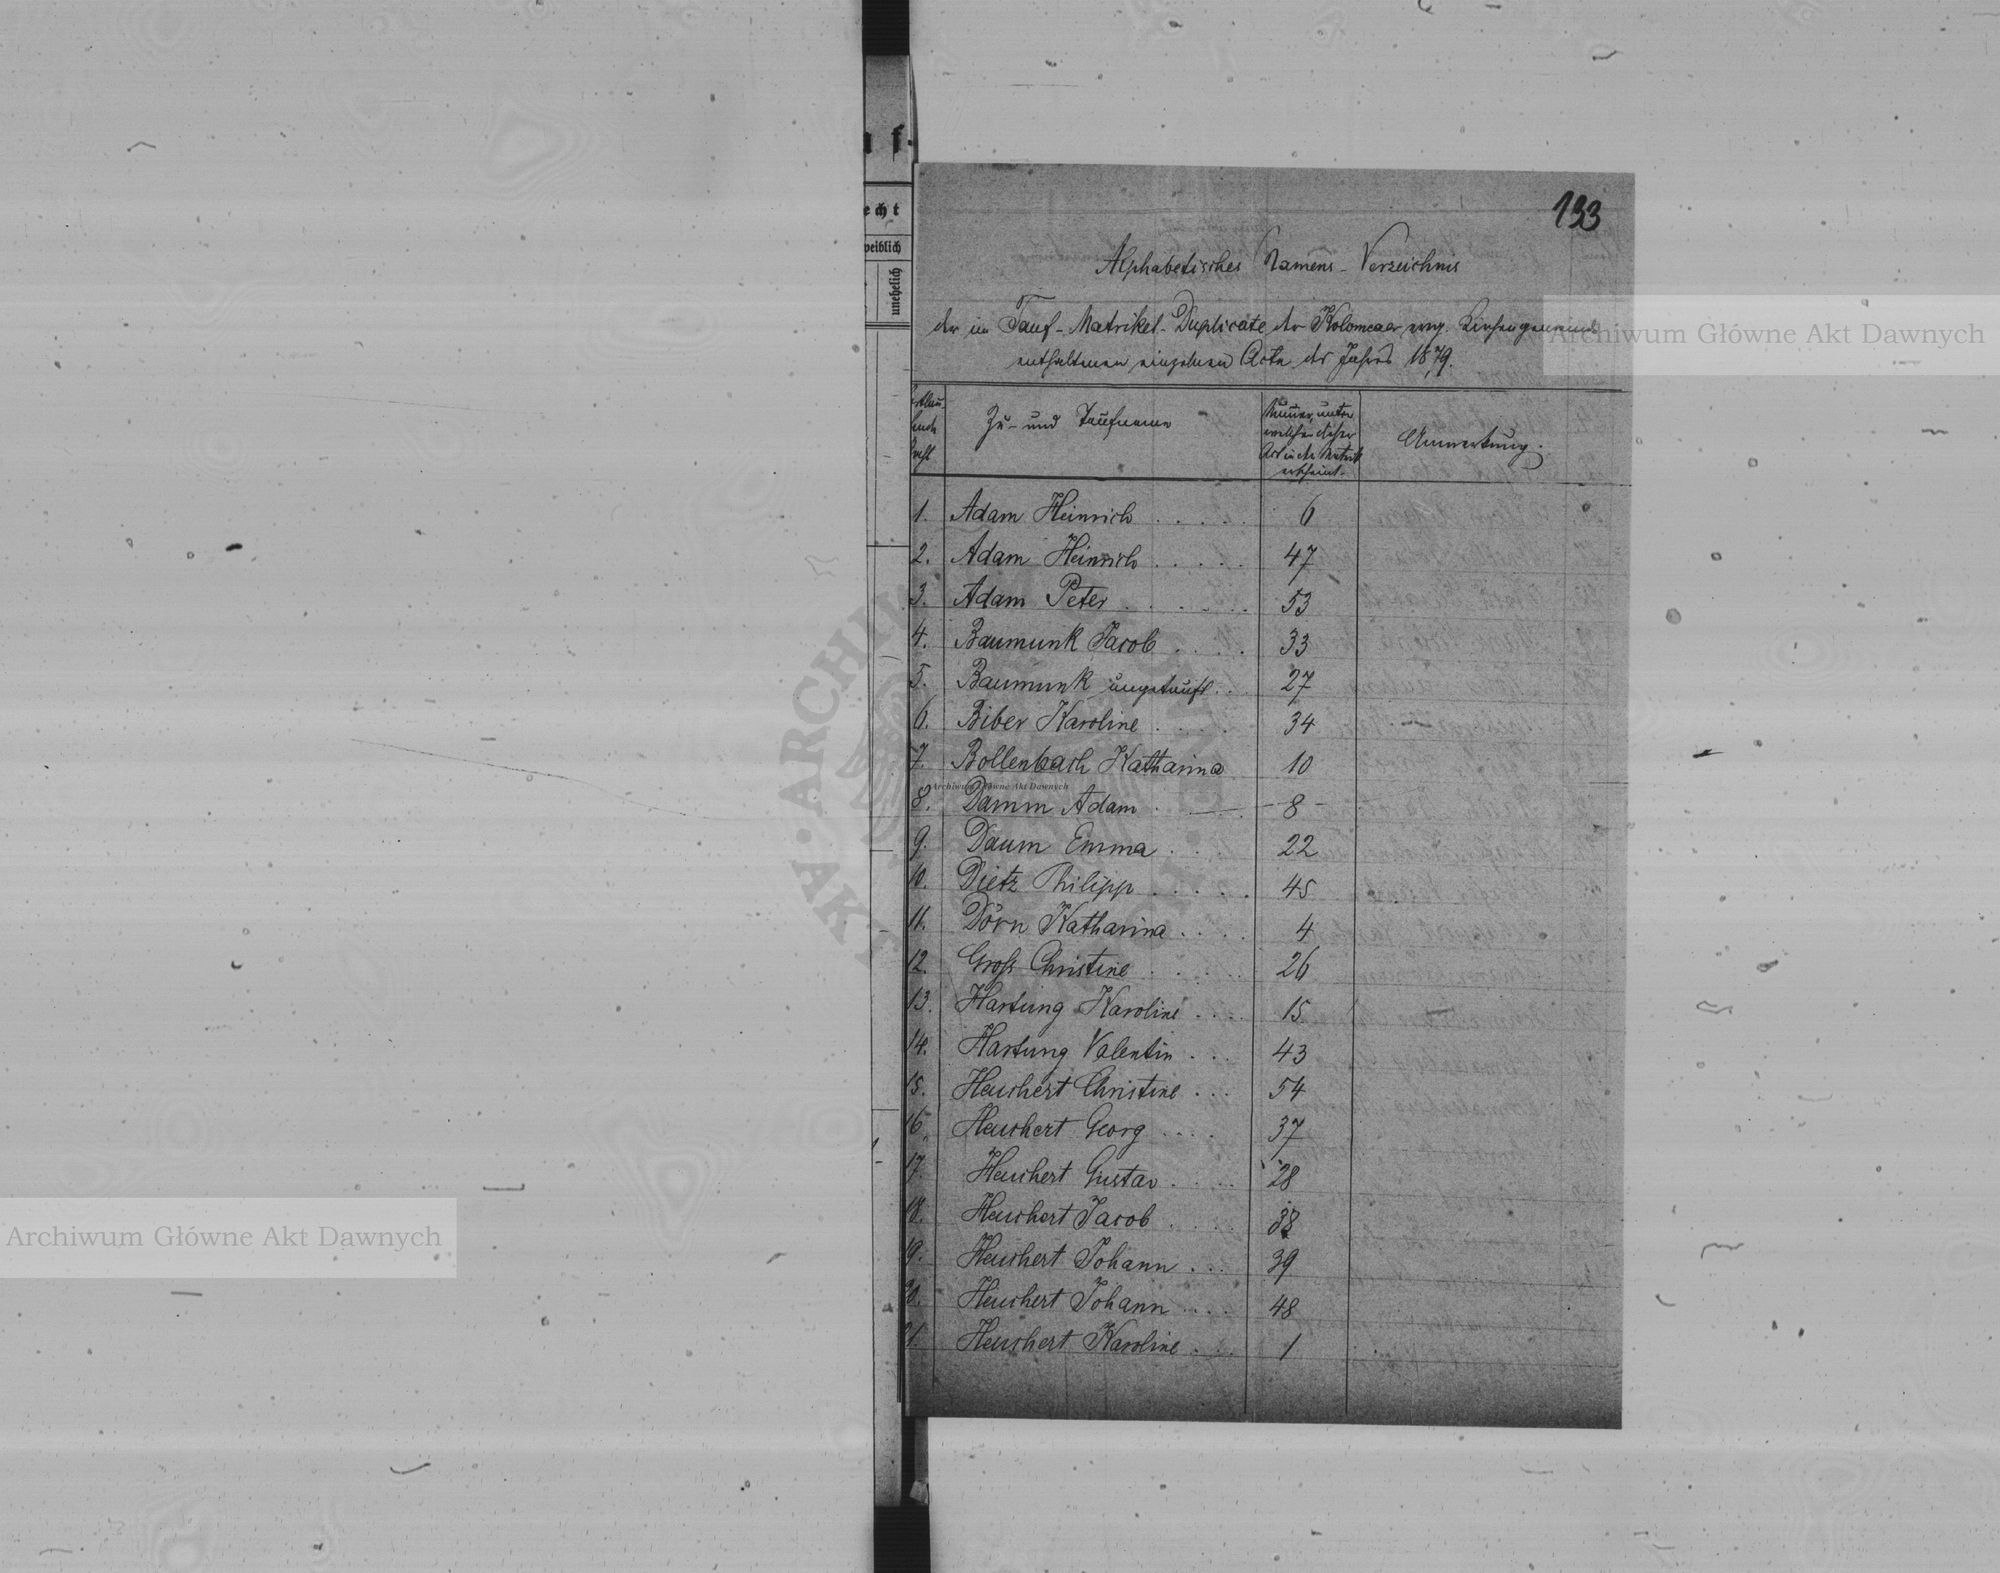 f.
echt
weiblich
unehelich
133
Alphabetisches Namens-Verzeichnis
der im Tauf-Matrikel-Duplicate der Kolomeaer evng. Kirchengemeinde
enthaltenen einzelnen Acte des Jahres 1879.
Fortlau-
fende
Zahl
Zu- und Taufname
Numer, unter
welcher dieser
Act in der Matrik
erscheint.
Anmerkung.
1. Adam Heinrich . . . . . 6
2. Adam Heinrich . . . . . 47
3. Adam Peter . . . . . 53
4. Baumunk Jacob . . . . 33
5. Baumunk ungetauft . . 27
6. Biber Karoline . . . . 34
7. Bollenbach Katharina 10
8. Damm Adam . — . - 8 -
9. Daum Emma . . . 22
10. Dietz Philipp . . . . . 45
11. Dörn Katharina . . . . 4
12. Groß Christine . . . . 26
13. Hartung Karoline . . . . 15
14. Hartung Valentin . . . 43
15. Heuchert Christine . . . 54
16. Heuchert Georg . . . . 37
17. Heuchert Gustav . . . . 28
18. Heuchert Jacob . . . . 38
19. Heuchert Johann . . . 39
20. Heuchert Johann . . . . 48
21. Heuchert Karoline . . . 1
Archiwum Główne Akt Dawnych
Archiwum Główne Akt Dawnych
Archiwum Główne Akt Dawnych